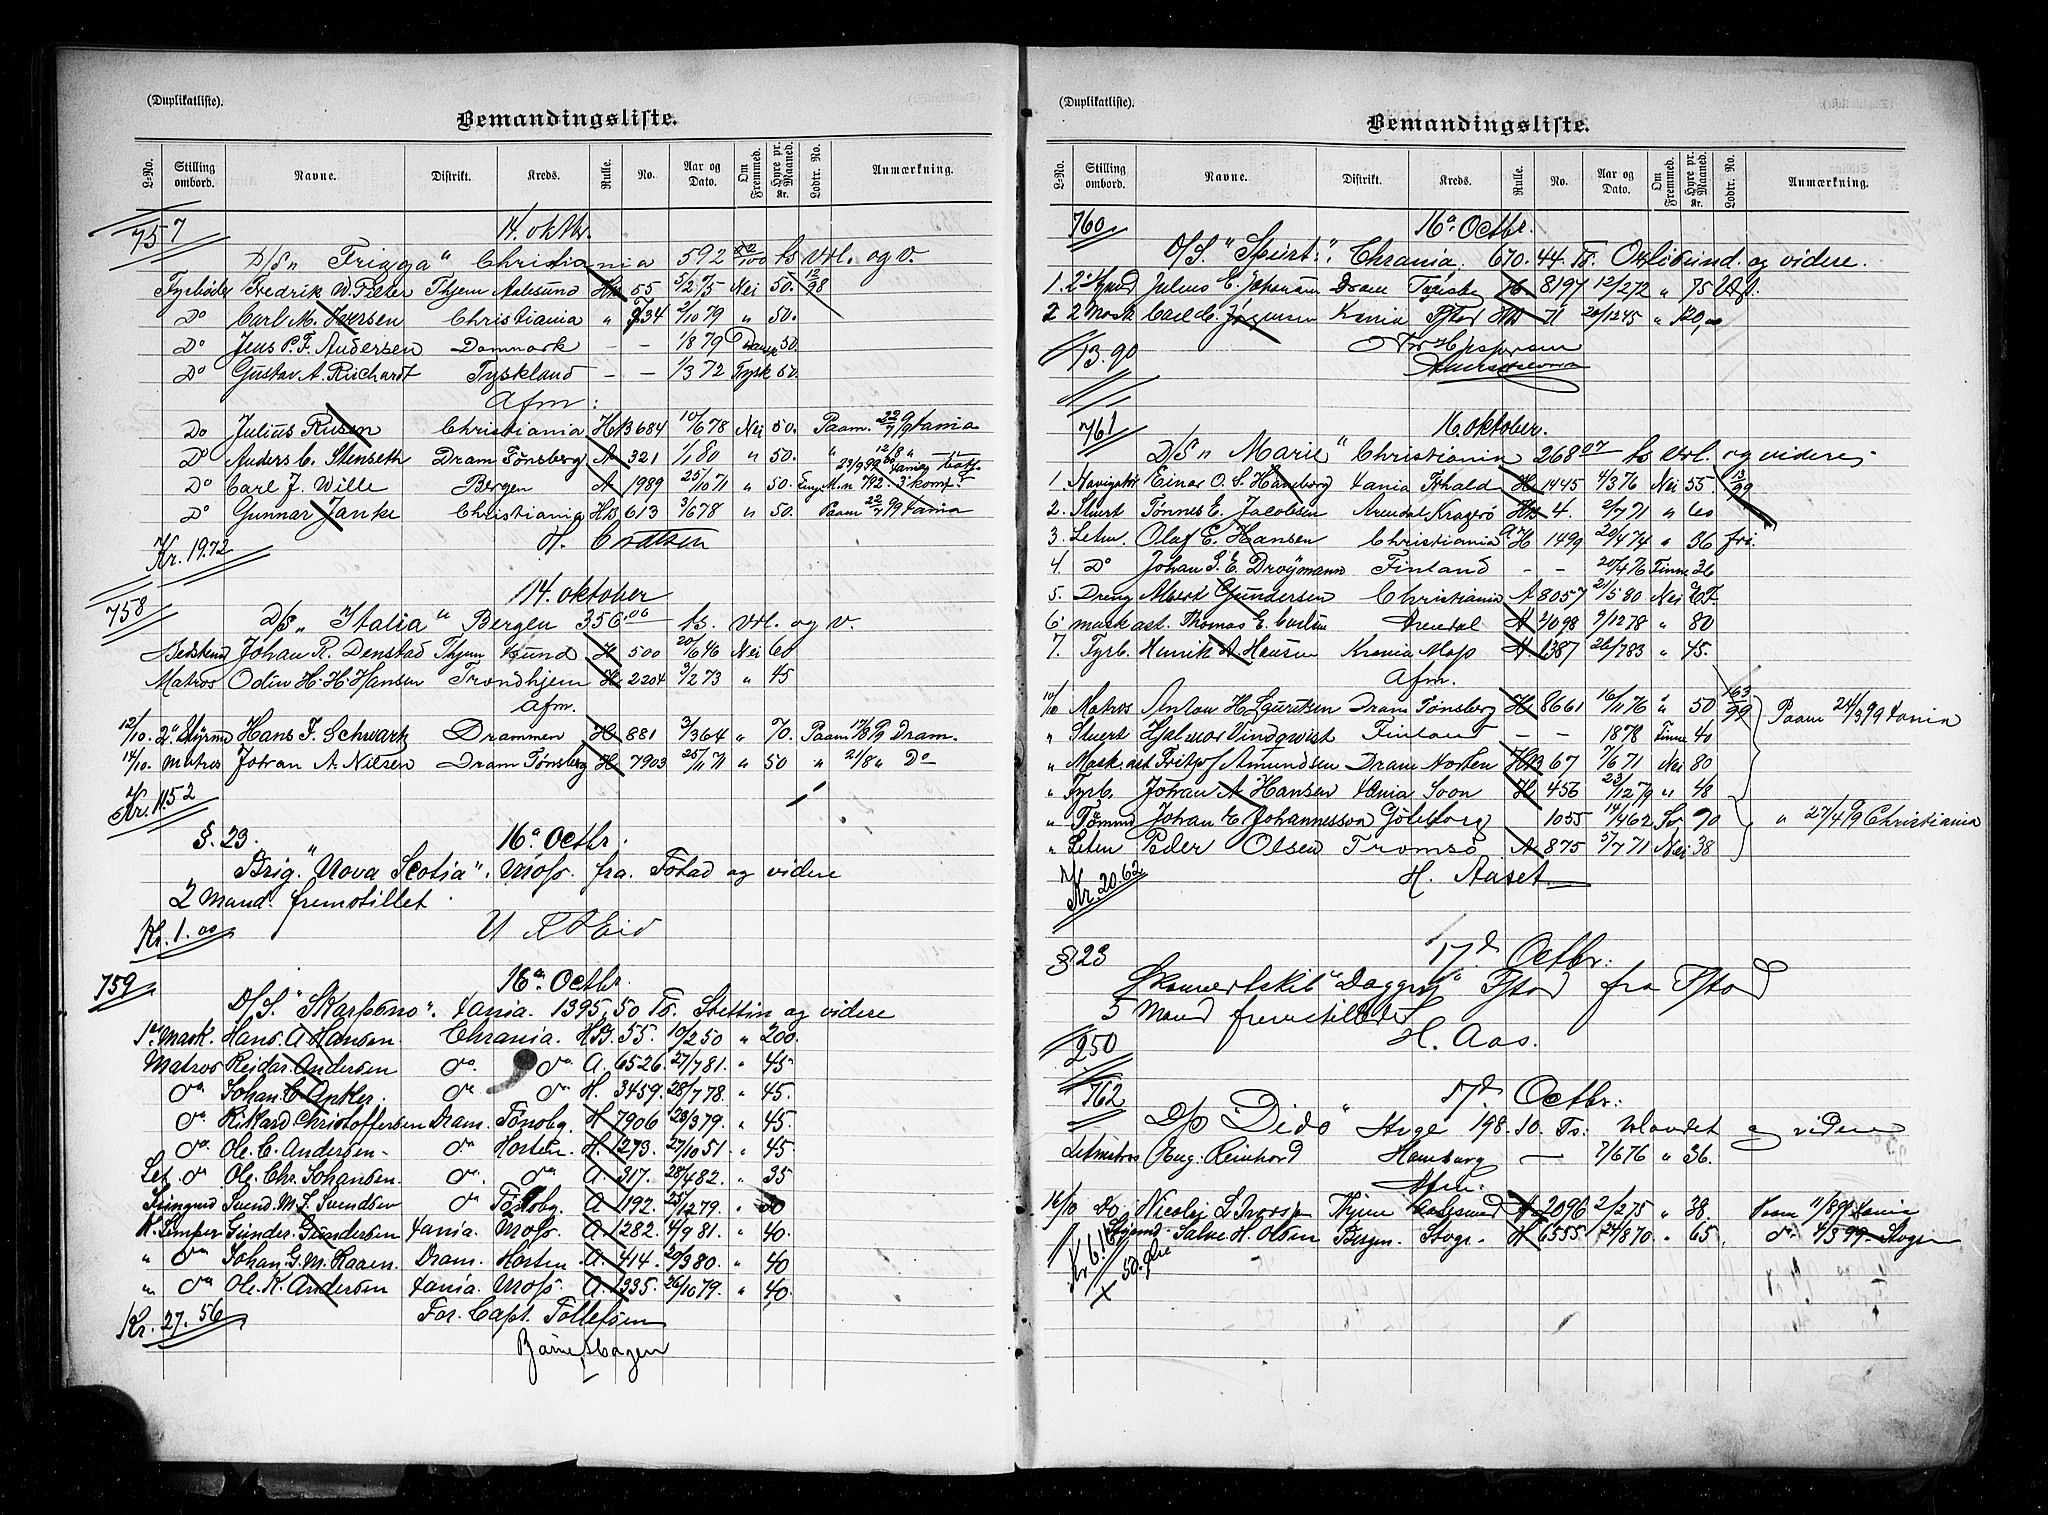 (Duplikatliste).
Bemandingsliste.
L-No. Stilling ombord. Navne. Distrikt. Kreds. Rulle. No. Aar og Dato. Om Fremmed. Hyre pr. Maaned. Kr. Lodtr. No. Anmærkning.
757 14. oktbr.
D/S „Frigga“ Christiania 592 ts vtl. og v.
Fyrböder Fredrik W. Thjem Aalesund 55 5/2 75 Nei 50. 12/98
Do Carl M. Iversen Christiania „ 734 2/10 79 „ 50.
Do Jens P. F. Andersen Danmark – – 1/8 79 Dansk 50
Do Gustav A. Richardt Tyskland – – 1/3 72 Tysk 50.
Afm:
Do Julius Christiania HB 684 10/6 78 Nei 50. Paam. 22/9 99 Xania
Do Anders C. Stenseth Dram Tønsberg A 321 1/1 80 „ 50. „ 12/8 „
Do Carl J. Wille Bergen A 1989 25/10 71 „ 50.
Do Gunnar Janke Christiania HB 613 3/6 78 „ 50. Paam 22/7 99 Xania
Kr. 19.72
758 14. oktober
D/S „Italia“ Bergen 356.06 ts. vtl. og v.
Bedstmd Johan R. Denstad Thjem Xsund H 500 20/6 46 Nei 60
Matros Odin H. H. Hansen Trondhjem H 2204 3/2 73 „ 45
Afm.
12/10. 2' Styrmd Hans F. Schwartz Drammen H 881 3/3 64 „ 70. Paam 17/8 99 Dram.
14/10. Matros Johan A. Nilsen Dram Tønsberg H 7903 25/11 71 „ 50 „ 21/8 „ Do
Kr. 11.52
§. 23. 16' Octbr.
Brig. „Nova Scotia“. Moss. fra. Ystad og videre
2 Mand. fremstillet.
Kr. 1.00
759 16' Octbr.
D/S. "Skarpsno". Xania. 1395.50 Ts. Stettin og videre
1' Mask. Hans. A Hansen. Chrania. HB. 55. 10/2 50 „ 200.
Matros Reidar. Andersen do. do. A. 6526. 27/7 81. „ 45
do. Johan. C. Anker. do do H. 3459. 28/7 78. „ 45.
do. Rikard Christoffersen Dram. Tönsbg. H 7906 23/3 79. „ 45.
do. Ole. C. Andersen. do. Horten. H. 1273. 27/10 51 „ 45
Let. do Ole. Chr. Johansen. do. do A. 317. 28/4 82. „ 35
Svend. M. J. Svendsen do Tönsbg. A 192. 25/12 79. „ 30
K. Lemper Günder. Gundersen Xania. Moss. A 1282 4/9 81. „ 40.
„ do Johan G. M. Kaaen. Dram. Horten. A 414. 20/3 80. „ 40
„ do Ole. K. Andersen Xania. Moss. A. 1335. 26/10 79. „ 40.
Kr. 27.56 For. Capt. Tollefsen
(Duplikatliste).
Bemandingsliste.
L-No. Stilling ombord. Navne. Distrikt. Kreds. Rulle. No. Aar og Dato. Om Fremmed. Hyre pr. Maaned. Kr. Lodtr. No. Anmærkning.
760 16' Octbr.
D/S. "Speirt." Chrania. 670.44 Ts. og videre.
1. Julius E. Jespersen Dram 8197 12/2 72 „ 75
2 2 Mask Carl C. Jørgensen Xania HB 71 20/12 45 „ 120,00
13.90
761 16. oktober.
D/S „Marie“ Christiania 268.07 ts vtl. og videre
1. Navigatör Einar O. S. Hamborg Xania Fhald H 1445 4/3 76 Nei 55. 13/99
2. Stuert Tönnes E. Jacobsen Arendal Kragerö HB 4. 2/7 71 „ 60
3. Letm. Olaf E. Hansen Christiania H 1499 20/4 74 „ 36
4. Do Johan S. E. Finland – – 20/4 76 Finne 36
5. Dreng Albert Gundersen Christiania A 8057 21/5 80 Nei
6. mask.ast. Thomas E. Arendal H 4098 9/12 78 „ 80
7. Fyrb. Henrik A. Hansen Xrania Moss H 1387 26/7 83 „ 45.
Afm.
10/10 Matros Anton H. Lauritsen Dram Tønsberg H 8661 16/11 76 „ 50 163/99 Paam 24/3 99 Xania
„ Stuert Hjalmar Lindqwist Finland – – 1878 Finne 40
„ Mask.ast Fritjof Amundsen Dram Horten HB 67 7/6 71 Nei 80
„ Fyrb. Johan A. Hansen Xania Soon H 456 23/12 79 „ 48
„ Tömmd Johan E. Johannesson Göteborg 1055 14/4 62 Sv 70 „ 27/4 99 Christiania
„ Letm Peder Olsen Tromsö A 875 5/7 71 Nei 38
Kr. 20.62 H. Aaset.
§ 23 17d Octbr:
"Daggry" Ystad fra Ystad
5 Mand fremstillet
H. Aas.
2.50
762 17d Octbr:
D/S "Dido" Stvgr 198.10. Ts: og videre
Letmatros Aug. Reinhord Hamburg – 7/6 76 „ 36.
Afm.
16/10 Do Nicolai L. H 2096 2/2 75 „ 38. Paam 11/8 99 Xania
Salve H. Olsen Bergen. Stvgr. H 6555 24/8 70 „ 65 do. 4/3 99. Stvgr